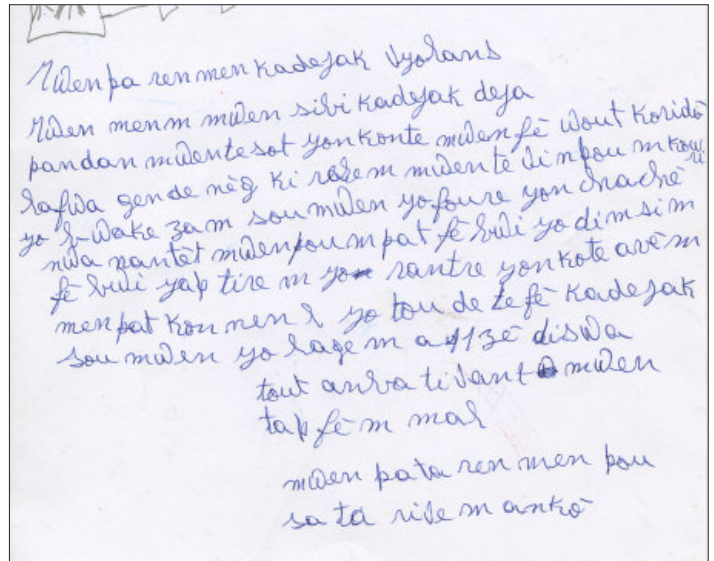 Mwen pa renmen kadejak vyolans
Mwen menm mwen sibi kadejak deja
pandan mwen te sot yon kote mwen fè wout koridò
lafwa gen de nèg ki rive m mwen te vin pou m kouri
yo bwake zam sou mwen yo foure yon chachè
nwa nan tèt mwen pou m pat fè bwi yo di m si m
fè bwi yap tire m yo rantre yon kote avè m
men pat konnen l yo tou de te fè kadejak
sou mwen yo lage m a 11zè diswa
tout anba ti vant mwen
tap fè m mal
mwen pa ta renmen pou
sa ta rive m ankò